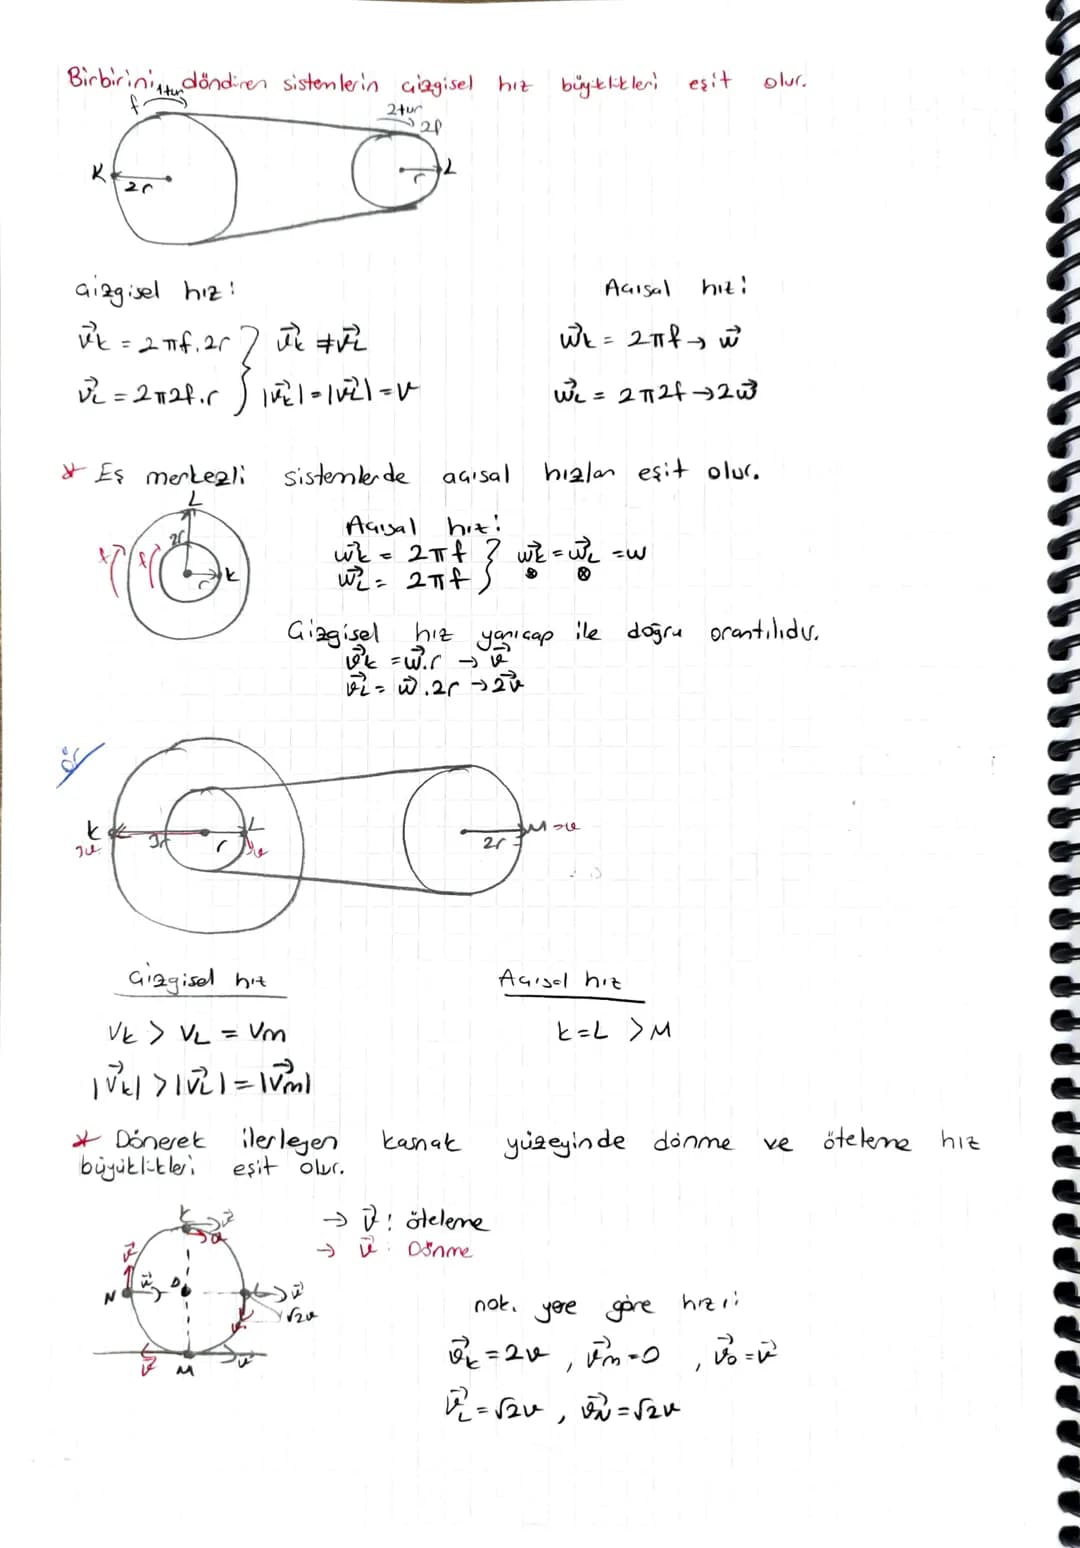 Birbirini döndüren sistemlerin çizgisel hız büyüklükleri eşit olur.
f 1 tur
2 tur
2f
K 2r
r L
Çizgisel hız:
Açısal hız:
v⃗k = 2πf.2r } v⃗k ≠ v⃗L
w⃗k = 2πf → w⃗
v⃗L = 2π2f.r } |v⃗k| = |v⃗L| = v
w⃗L = 2π2f → 2w⃗
* Eş merkezli sistemlerde açısal hızları eşit olur.
L
2r
f f
r k
Açısal hız:
w⃗k = 2πf } w⃗k = w⃗L = w
w⃗L = 2πf }
Çizgisel hız yarıçap ile doğru orantılıdır.
v⃗k = w⃗.r → v⃗
v⃗L = w⃗.2r → 2v⃗
ör
k 3r r L
3v v
2r M → v
Çizgisel hız
Açısal hız
Vk > VL = Vm
k = L > M
|V⃗k| > |V⃗L| = |V⃗m|
* Dönerek ilerleyen kasnak yüzeyinde dönme ve öteleme hız
büyüklükleri eşit olur.
k v⃗
v
→ v⃗: öteleme
→ v⃗: Dönme
v⃗
N v⃗ O v⃗
v √2v
v⃗ M v
nok. yere göre hızı:
v⃗k = 2v , v⃗m = 0 , v⃗o = v⃗
v⃗L = √2v , v⃗N = √2v